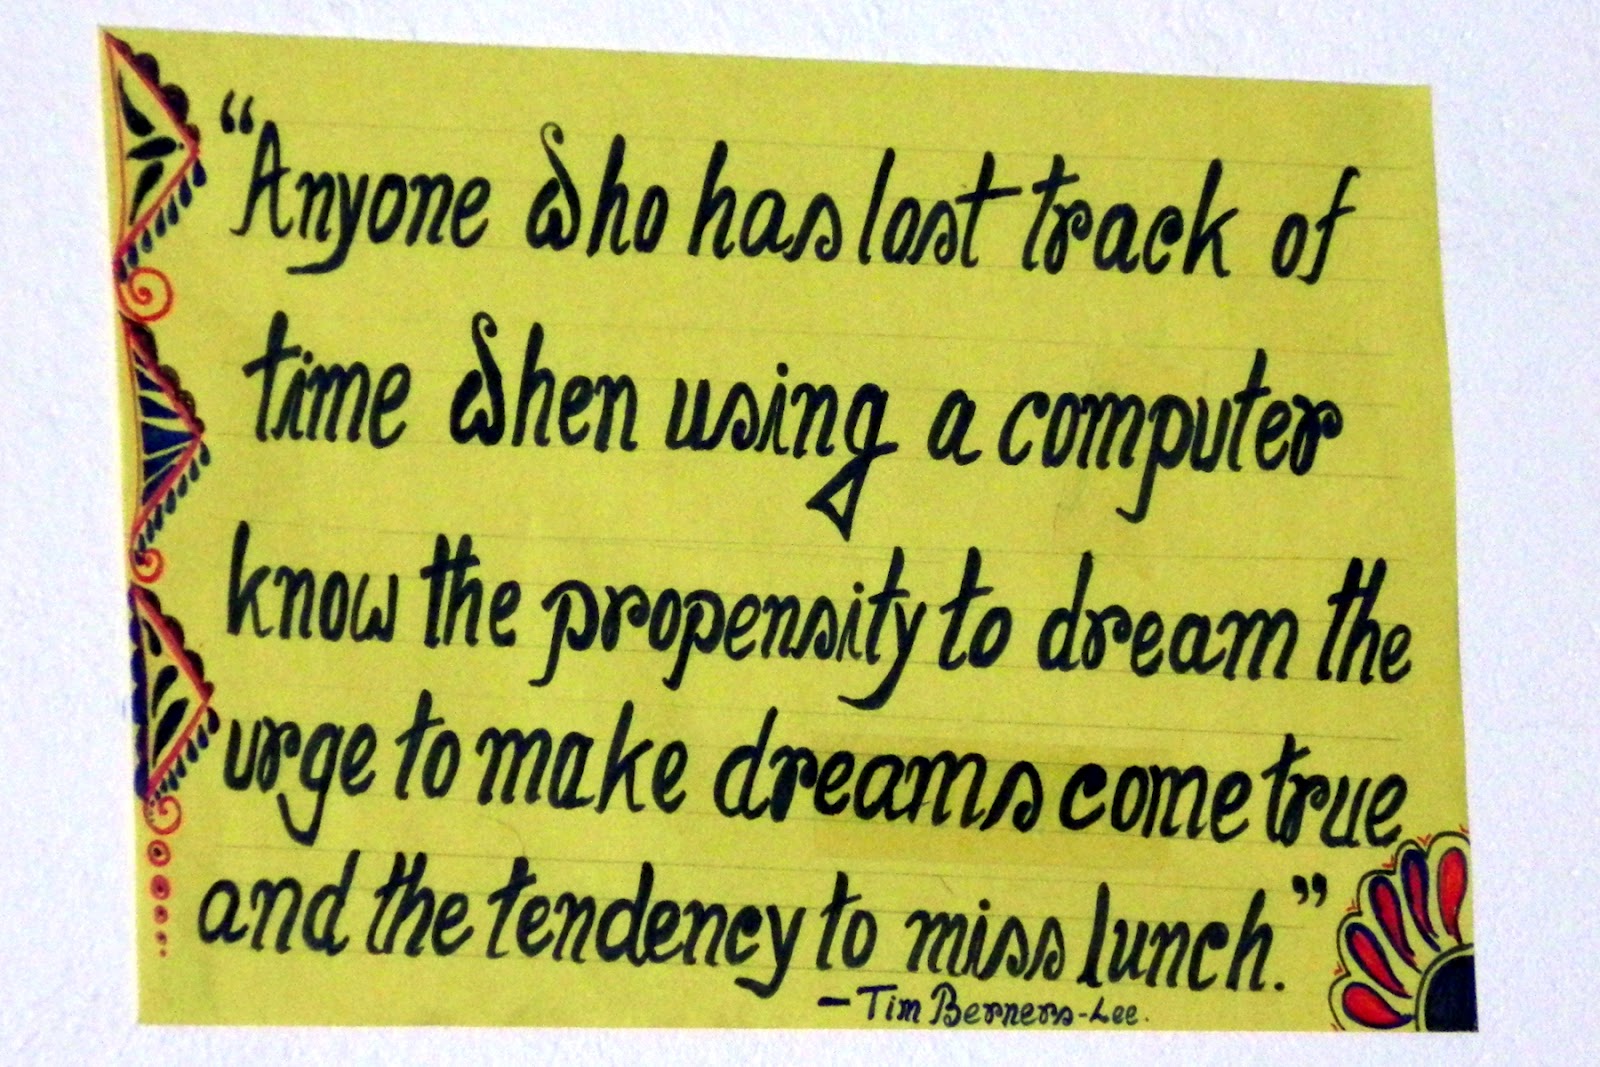 “Anyone who has lost track of
time when using a computer
know the propensity to dream the
urge to make dreams come true
and the tendency to miss lunch.”
— Tim Berners-Lee.